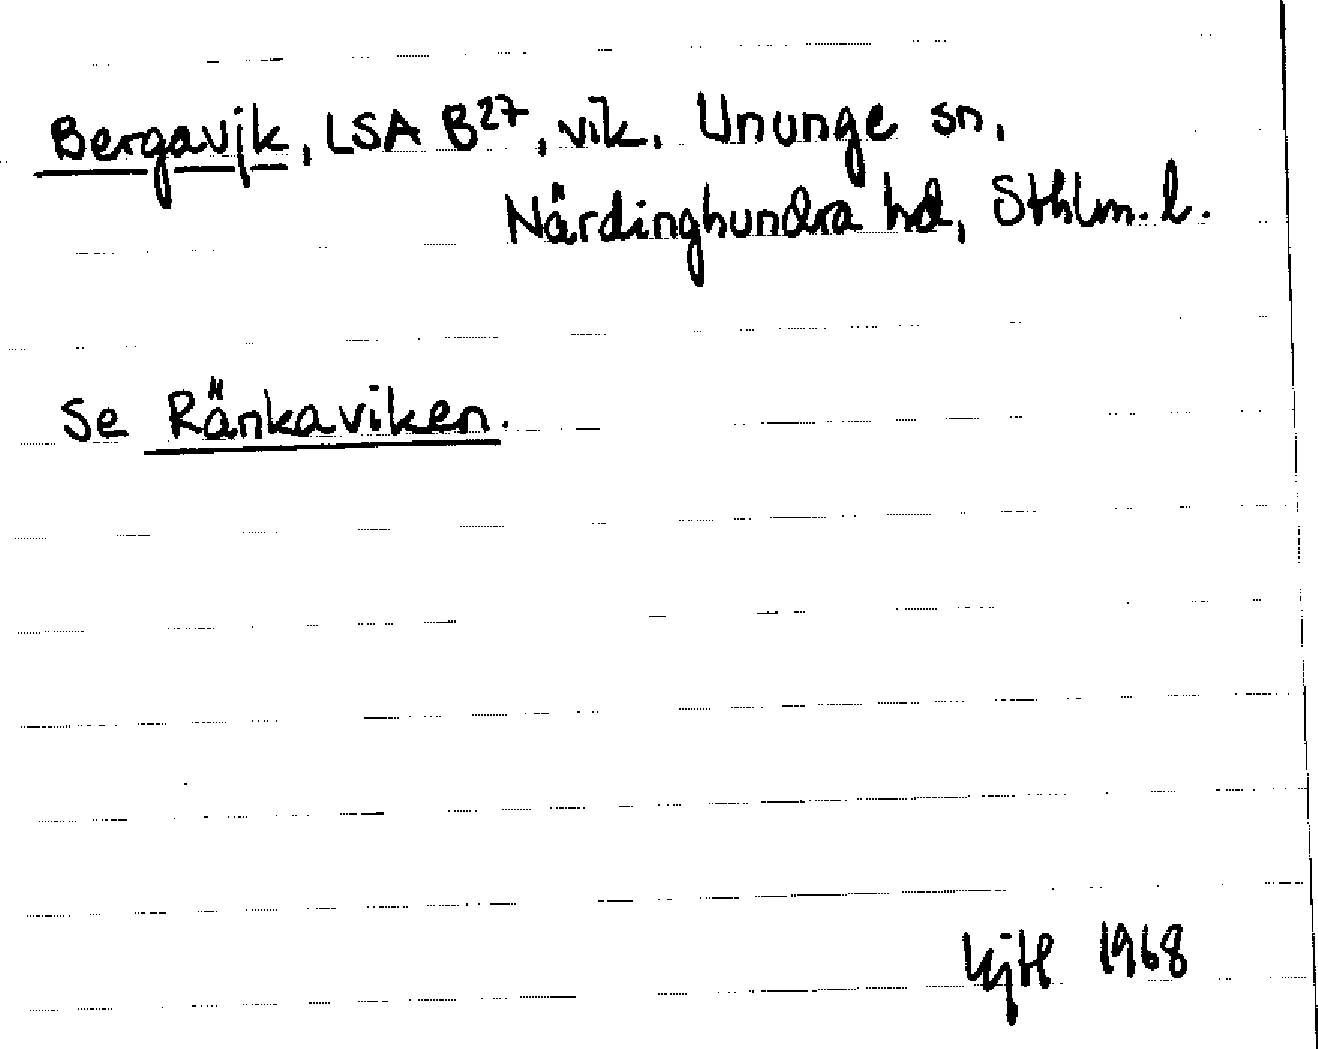 Bergavik, LSA B27, vik. Ununge sn,
Närdinghundra hd, Sthlm. l.
Se Ränkaviken.
1968